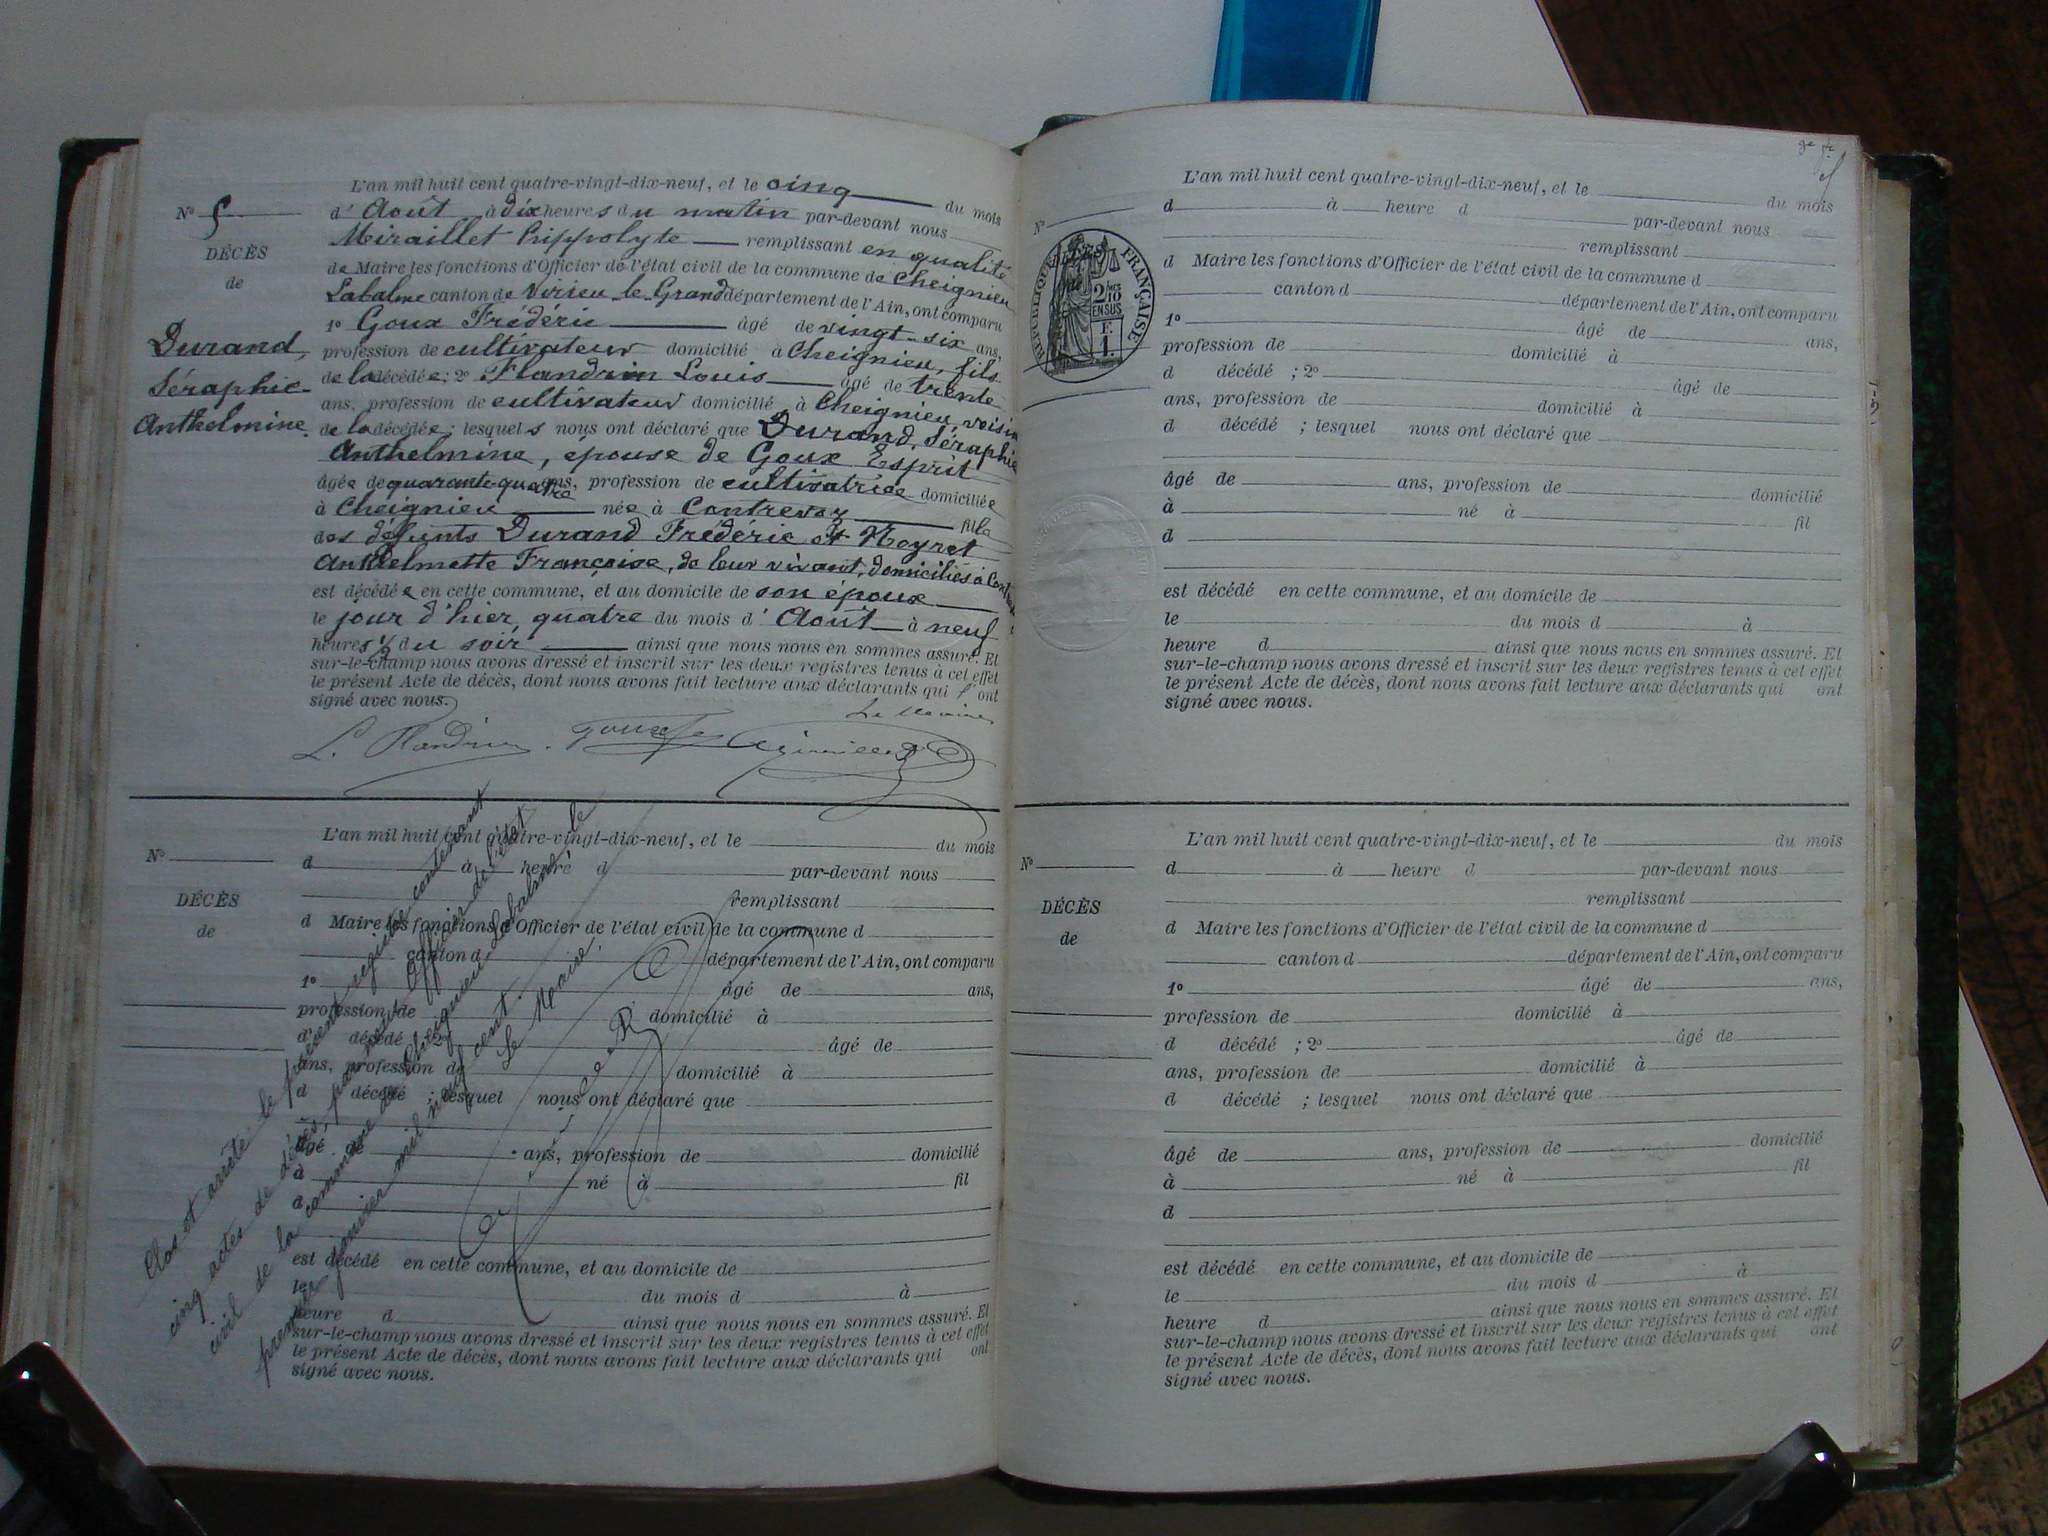 L'an mil huit cent quatre-vingt-dix-neuf, et le cinq du mois
d'Août à dix heures du matin par-devant nous
Miraillet Hippolyte remplissant en qualité
de Maire les fonctions d'Officier de l'état civil de la commune de Cheignieu
Labalme canton de Virieu le Grand département de l'Ain, ont comparu
1º Goux Frédéric âgé de vingt-six ans,
profession de cultivateur domicilié à Cheignieu, fils
de la décédée; 2º Flandrin Louis âgé de trente
ans, profession de cultivateur domicilié à Cheignieu, voisin
de la décédée; lesquels nous ont déclaré que Durand, Séraphie
Anthelmine, épouse de Goux Esprit
âgée de quarante-quatre ans, profession de cultivatrice domiciliée
à Cheignieu née à Contrevoz fille
des défunts Durand Frédéric et Neyret
Anthelmette Françoise, de leur vivant, domiciliés à
est décédée en cette commune, et au domicile de son époux
le jour d'hier, quatre du mois d'Août à neuf
heures ½ du soir ainsi que nous nous en sommes assuré. Et
sur-le-champ nous avons dressé et inscrit sur les deux registres tenus à cet effet
le présent Acte de décès, dont nous avons fait lecture aux déclarants qui l'ont
signé avec nous.
Le Maire
L. Flandrin
Nº 5
DÉCÈS
de
Durand,
Séraphie-
Anthelmine.
Nº
DÉCÈS
de
L'an mil huit cent quatre-vingt-dix-neuf, et le du mois
d à heure d par-devant nous
remplissant
d Maire les fonctions d'Officier de l'état civil de la commune d
canton d département de l'Ain, ont comparu
1º âgé de ans,
profession de domicilié à
d décédé ; 2º âgé de
ans, profession de domicilié à
d décédé ; lesquel nous ont déclaré que
âgé de ans, profession de domicilié
à né à fil
d
est décédé en cette commune, et au domicile de
le du mois d à
heure d ainsi que nous nous en sommes assuré. Et
sur-le-champ nous avons dressé et inscrit sur les deux registres tenus à cet effet
le présent Acte de décès, dont nous avons fait lecture aux déclarants qui ont
signé avec nous.
Clos et arrêté le présent registre contenant
cinq actes de décès, par nous Officier de l'état
civil de la commune de Cheignieu Labalme le
premier janvier mil neuf cent.
Le Maire,
Nº
RÉPUBLIQUE FRANÇAISE
2/10
EN SUS
F.
1.
L'an mil huit cent quatre-vingt-dix-neuf, et le du mois
d à heure d par-devant nous
remplissant
d Maire les fonctions d'Officier de l'état civil de la commune d
canton d département de l'Ain, ont comparu
1º âgé de ans,
profession de domicilié à
d décédé ; 2º âgé de
ans, profession de domicilié à
d décédé ; lesquel nous ont déclaré que
âgé de ans, profession de domicilié
à né à fil
d
est décédé en cette commune, et au domicile de
le du mois d à
heure d ainsi que nous nous en sommes assuré. Et
sur-le-champ nous avons dressé et inscrit sur les deux registres tenus à cet effet
le présent Acte de décès, dont nous avons fait lecture aux déclarants qui ont
signé avec nous.
Nº
DÉCÈS
de
L'an mil huit cent quatre-vingt-dix-neuf, et le du mois
d à heure d par-devant nous
remplissant
d Maire les fonctions d'Officier de l'état civil de la commune d
canton d département de l'Ain, ont comparu
1º âgé de ans,
profession de domicilié à
d décédé ; 2º âgé de
ans, profession de domicilié à
d décédé ; lesquel nous ont déclaré que
âgé de ans, profession de domicilié
à né à fil
d
est décédé en cette commune, et au domicile de
le du mois d à
heure d ainsi que nous nous en sommes assuré. Et
sur-le-champ nous avons dressé et inscrit sur les deux registres tenus à cet effet
le présent Acte de décès, dont nous avons fait lecture aux déclarants qui ont
signé avec nous.